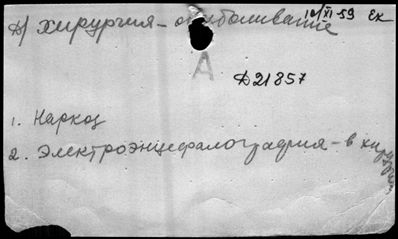 Д) Хирургия - обезболивание 10/XI-59 Ек
А
Д21857
1. Наркоз
2. Электроэнцефалография - в хирургии